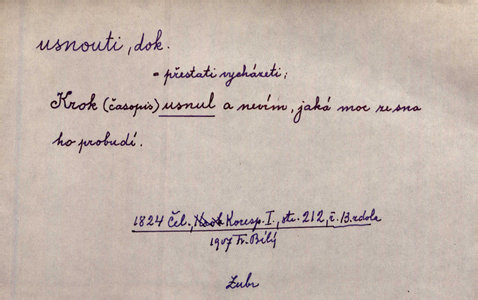 usnouti, dok.
= přestati vycházeti;
Krok (časopis) usnul a nevím, jaká moc ze sna
ho probudí.
1824 Čel., Koresp. I., str. 212, č. B.rdola
1907 Fr. Bílý
Zubr